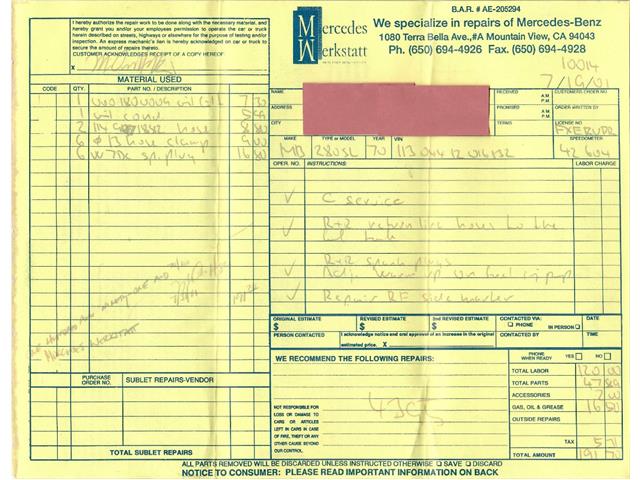 B.A.R. # AE-205294
I hereby authorize the repair work to be done along with the necessary material, and
hereby grant you and/or your employees permission to operate the car or truck
herein described on streets, highways or elsewhere for the purpose of testing and/or
inspection. An express mechanic's lien is hereby acknowledged on car or truck to
secure the amount of repairs thereto.
CUSTOMER ACKNOWLEDGES RECEIPT OF A COPY HEREOF.
X
Mercedes
Werkstatt
We specialize in repairs of Mercedes-Benz
1080 Terra Bella Ave.,#A Mountain View, CA 94043
Ph. (650) 694-4926 Fax. (650) 694-4928
10014
7/19/01
MATERIAL USED
CODE QTY. PART NO. / DESCRIPTION
1
1
2 hose
6 Ø 13 hose clamp 9 00
6 sp. plug
NAME
ADDRESS
CITY
RECEIVED A.M. P.M.
PROMISED A.M. P.M.
TERMS
CUSTOMERS ORDER NO.
ORDER WRITTEN BY
LICENSE NO.
MAKE TYPE or MODEL YEAR VIN SPEEDOMETER
MB 280SL 70 113 044 12 016132 42 604
OPER. NO. INSTRUCTIONS: LABOR CHARGE
√ C service
√ R+R return line hoses to the
tank
√ R+R spark plugs
√ Repair RF side marker
ORIGINAL ESTIMATE $
REVISED ESTIMATE $
2nd REVISED ESTIMATE $
CONTACTED VIA: PHONE IN PERSON
DATE
PERSON CONTACTED
I acknowledge notice and oral approval of an increase in the original
estimated price. X
CONTACTED BY
TIME
WE RECOMMEND THE FOLLOWING REPAIRS:
PHONE WHEN READY YES NO
TOTAL LABOR 120 00
TOTAL PARTS 47 89
ACCESSORIES 2 00
GAS, OIL & GREASE 16 50
OUTSIDE REPAIRS
TAX 5 31
TOTAL AMOUNT 191 70
PURCHASE ORDER NO. SUBLET REPAIRS-VENDOR
NOT RESPONSIBLE FOR
LOSS OR DAMAGE TO
CARS OR ARTICLES
LEFT IN CARS IN CASE
OF FIRE, THEFT OR ANY
OTHER CAUSE BEYOND
OUR CONTROL.
TOTAL SUBLET REPAIRS
ALL PARTS REMOVED WILL BE DISCARDED UNLESS INSTRUCTED OTHERWISE SAVE DISCARD
NOTICE TO CONSUMER: PLEASE READ IMPORTANT INFORMATION ON BACK